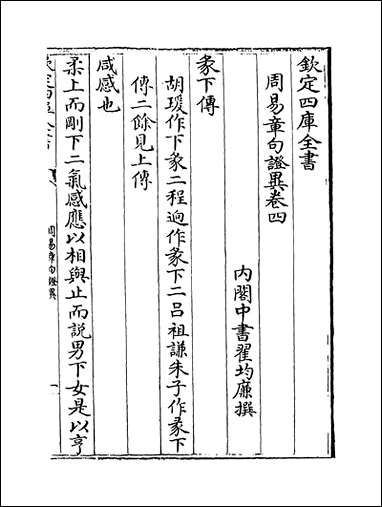 欽定四庫全書
周易章句證異卷四
内閣中書翟均廉撰
彖下傳
胡瑗作下彖二程逈作彖下二吕祖謙朱子作彖下
傳二餘見上傳
咸感也
柔上而剛下二氣感應以相與止而說男下女是以亨
周易章句證異
一